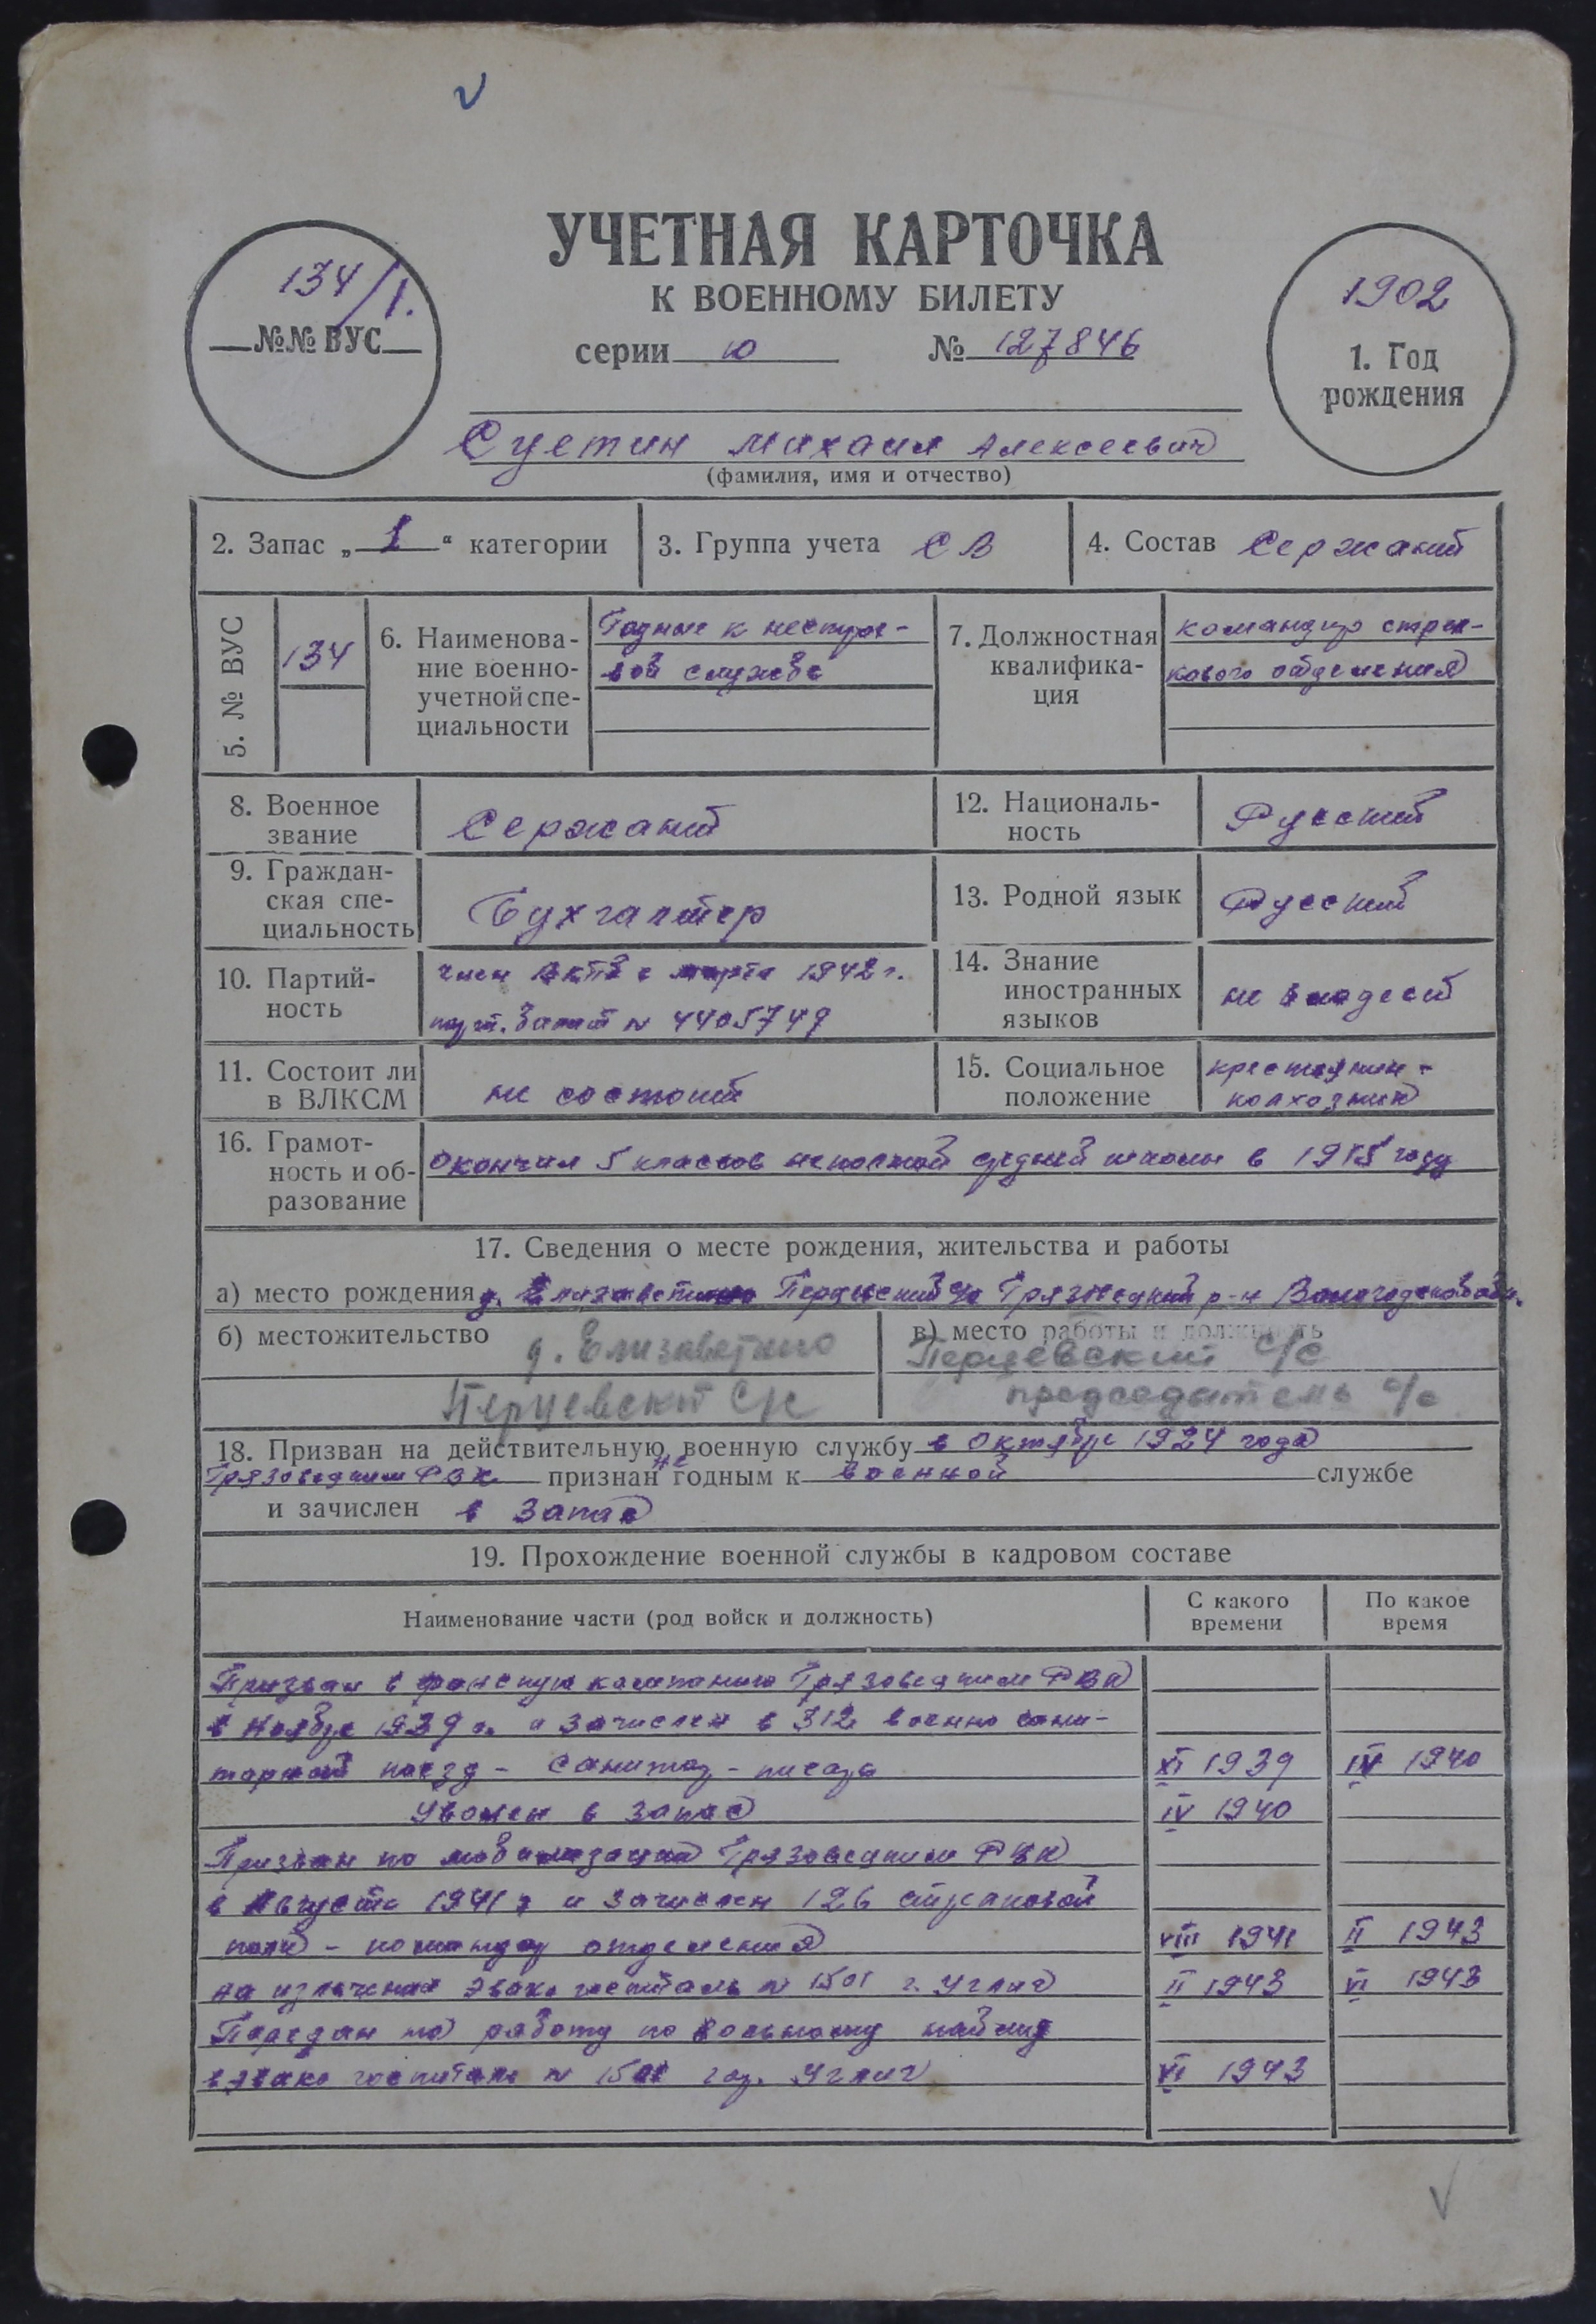 134/1.
№№ ВУС
УЧЕТНАЯ КАРТОЧКА
К ВОЕННОМУ БИЛЕТУ
серии ю № 127846
1902
1. Год
рождения
Суетин Михаил Алексеевич
(фамилия, имя и отчество)
2. Запас „1“ категории
3. Группа учета СВ
4. Состав Сержант
5. № ВУС
134
6. Наименова-
ние военно-
учетной спе-
циальности
Годные к нестрое-
вой службе
7. Должностная
квалифика-
ция
командир стрел-
кового отделения
8. Военное
звание
Сержант
12. Националь-
ность
Русский
9. Граждан-
ская спе-
циальность
Бухгалтер
13. Родной язык
Русский
10. Партий-
ность
член ВКПб с марта 1942 г.
парт. билет № 4405749
14. Знание
иностранных
языков
не владеет
11. Состоит ли
в ВЛКСМ
не состоит
15. Социальное
положение
крестьянин-
колхозник
16. Грамот-
ность и об-
разование
окончил 5 классов неполной средней школы в 1915 году
17. Сведения о месте рождения, жительства и работы
а) место рождения д. Елизаветино Перцевский с/с Грязовецкий р-н Вологодской обл.
б) местожительство д. Елизаветино
Перцевский с/с
в) место работы и должность
Перцевский с/с
председатель с/с
18. Призван на действительную военную службу в октябре 1924 года
Грязовецким РВК признан не годным к военной службе
и зачислен в запас
19. Прохождение военной службы в кадровом составе
Наименование части (род войск и должность)
С какого
времени
По какое
время
Призван в финскую кампанию Грязовецким РВК
в ноябре 1939 г. и зачислен в 312 военно сани-
тарный поезд - санитар - писарь XI 1939 IV 1940
Уволен в запас IV 1940
Призван по мобилизации Грязовецким РВК
в Августе 1941 г и зачислен 126 стрелковой
полк - командир отделения VIII 1941 II 1943
на излечении Эвако госпиталь № 1501 г. Углич II 1943 VI 1943
Передан на работу по вольному найму
в эвако госпиталь № 1501 гор. Углич VI 1943